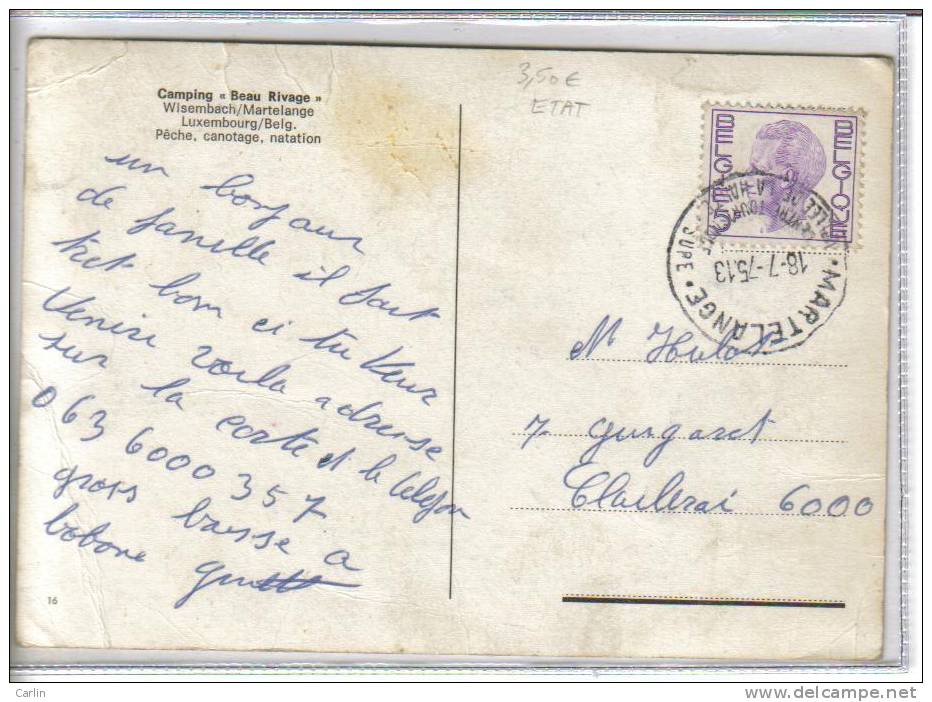 3,50 €
ETAT
Camping « Beau Rivage »
Wisembach/Martelange
Luxembourg/Belg.
Pêche, canotage, natation
BELGIQUE
BELGIE
MARTELANGE
18-7-75.13
un bonjour
de famille il faut
tret bon ci tu veux
venire voila adresse
sur la carte et le telefon
063 6000357
gros baisse a
bobone
Mr Hulot
7
6000
16
Carlin
www.delcampe.net